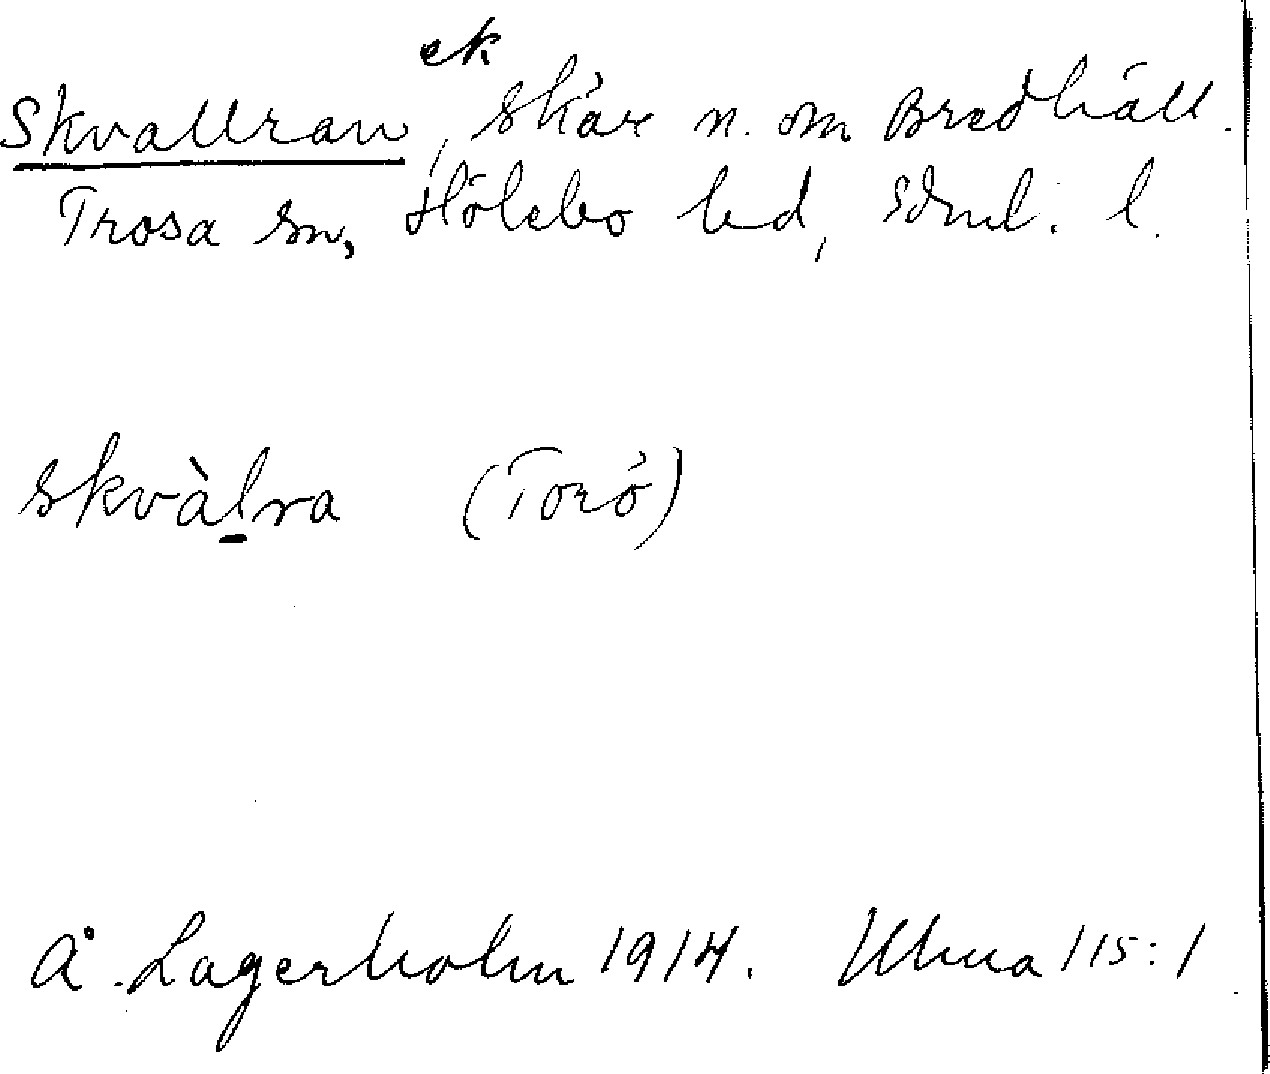 ek
Skvallran, skär n. om Bredhäll.
Trosa sn, Hölebo hd, Sdml. l.
skvàl̠ra (Torö)
Å. Lagerholm 1914. Ulma 115:1